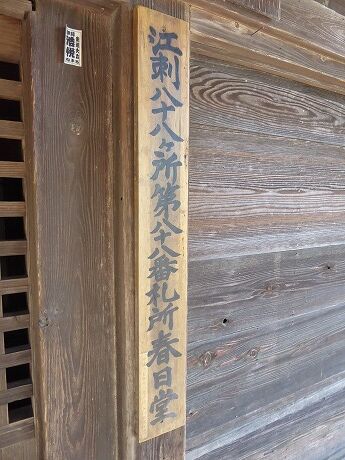 江刺八十八ヶ所第八十八番札所春日堂